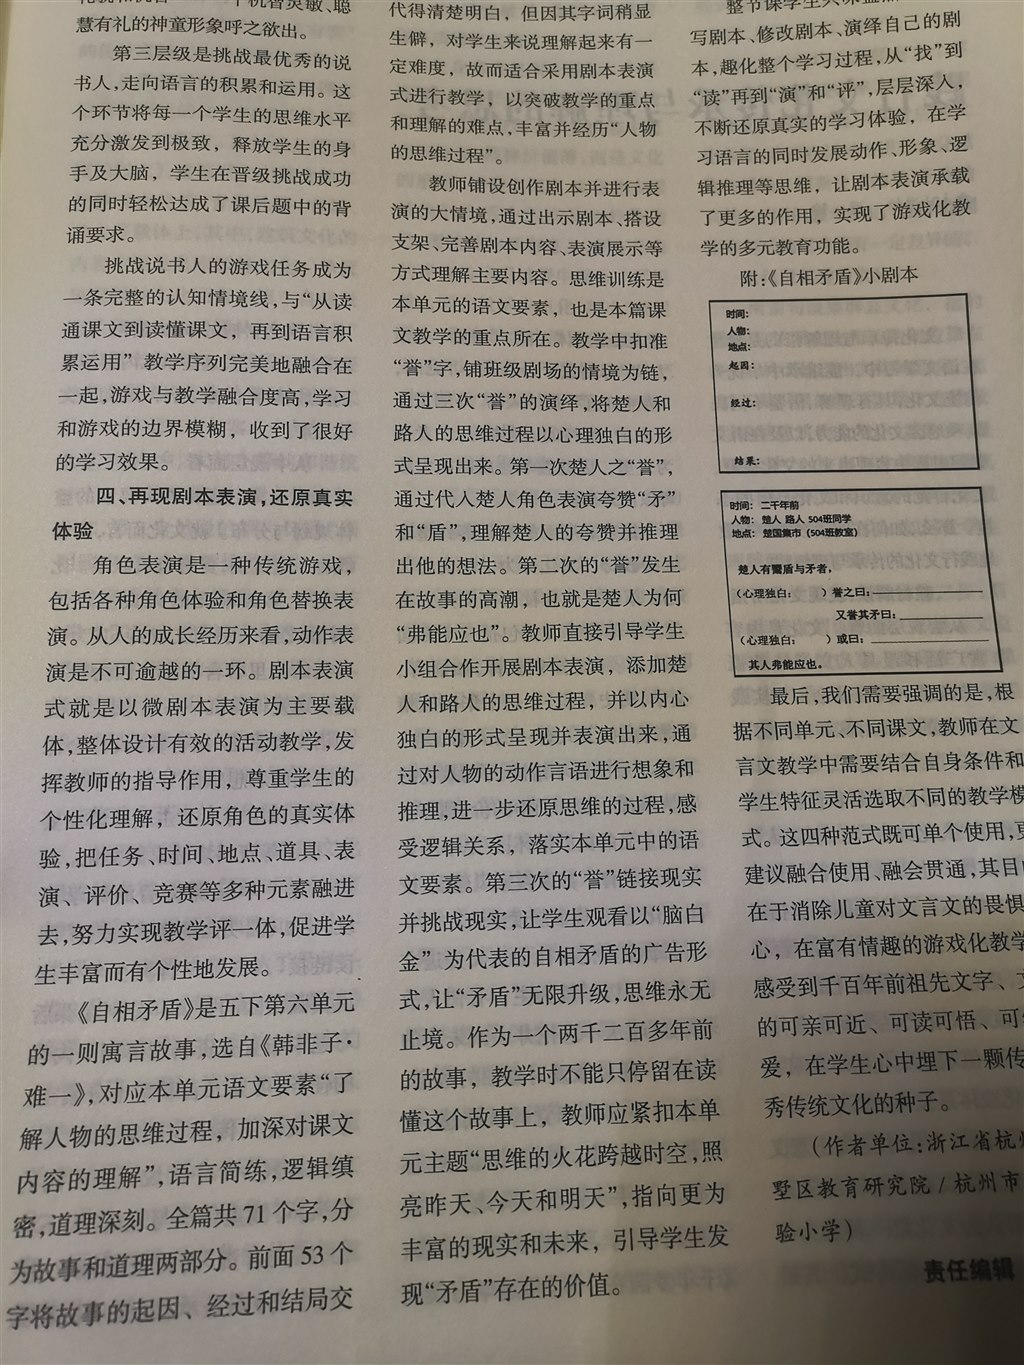 慧有礼的神童形象呼之欲出。
第三层级是挑战最优秀的说
书人,走向语言的积累和运用。这
个环节将每一个学生的思维水平
充分激发到极致，释放学生的身
手及大脑，学生在晋级挑战成功
的同时轻松达成了课后题中的背
诵要求。
挑战说书人的游戏任务成为
一条完整的认知情境线,与“从读
通课文到读懂课文，再到语言积
累运用”教学序列完美地融合在
一起,游戏与教学融合度高,学习
和游戏的边界模糊，收到了很好
的学习效果。
四、再现剧本表演,还原真实
体验
角色表演是一种传统游戏，
包括各种角色体验和角色替换表
演。从人的成长经历来看,动作表
演是不可逾越的一环。剧本表演
式就是以微剧本表演为主要载
体,整体设计有效的活动教学,发
挥教师的指导作用，尊重学生的
个性化理解，还原角色的真实体
验,把任务、时间、地点、道具、表
演、评价、竞赛等多种元素融进
去,努力实现教学评一体,促进学
生丰富而有个性地发展。
《自相矛盾》是五下第六单元
的一则寓言故事,选自《韩非子·
难一》,对应本单元语文要素“了
解人物的思维过程，加深对课文
内容的理解”,语言简练,逻辑缜
密,道理深刻。全篇共71个字,分
为故事和道理两部分。前面53个
字将故事的起因、经过和结局交
代得清楚明白，但因其字词稍显
生僻，对学生来说理解起来有一
定难度，故而适合采用剧本表演
式进行教学，以突破教学的重点
和理解的难点,丰富并经历“人物
的思维过程”。
教师铺设创作剧本并进行表
演的大情境,通过出示剧本、搭设
支架、完善剧本内容、表演展示等
方式理解主要内容。思维训练是
本单元的语文要素，也是本篇课
文教学的重点所在。教学中扣准
“誉”字,铺班级剧场的情境为链，
通过三次“誉”的演绎,将楚人和
路人的思维过程以心理独白的形
式呈现出来。第一次楚人之“誉”，
通过代入楚人角色表演夸赞“矛”
和“盾”,理解楚人的夸赞并推理
出他的想法。第二次的“誉”发生
在故事的高潮，也就是楚人为何
“弗能应也”。教师直接引导学生
小组合作开展剧本表演，添加楚
人和路人的思维过程，并以内心
独白的形式呈现并表演出来,通
过对人物的动作言语进行想象和
推理,进一步还原思维的过程,感
受逻辑关系，落实本单元中的语
文要素。第三次的“誉”链接现实
并挑战现实,让学生观看以“脑白
金”为代表的自相矛盾的广告形
式,让“矛盾”无限升级,思维永无
止境。作为一个两千二百多年前
的故事，教学时不能只停留在读
懂这个故事上，教师应紧扣本单
元主题“思维的火花跨越时空,照
亮昨天、今天和明天”,指向更为
丰富的现实和未来，引导学生发
现“矛盾”存在的价值。
写剧本、修改剧本、演绎自己的剧
本,趣化整个学习过程,从“找”到
“读”再到“演”和“评”,层层深入，
不断还原真实的学习体验，在学
习语言的同时发展动作、形象、逻
辑推理等思维，让剧本表演承载
了更多的作用，实现了游戏化教
学的多元教育功能。
附:《自相矛盾》小剧本
时间：
人物：
地点：
起因：
经过：
结果：
时间： 二千年前
人物： 楚人 路人 504班同学
地点： 楚国集市（504班教室）
楚人有鬻盾与矛者，
（心理独白： ）誉之曰：
又誉其矛曰：
（心理独白： ）或曰：
其人弗能应也。
最后,我们需要强调的是,根
据不同单元、不同课文,教师在文
言文教学中需要结合自身条件和
学生特征灵活选取不同的教学模
式。这四种范式既可单个使用,更
建议融合使用、融会贯通,其目的
在于消除儿童对文言文的畏惧
心，在富有情趣的游戏化教学
感受到千百年前祖先文字、
的可亲可近、可读可悟、可
爱，在学生心中埋下一颗传
秀传统文化的种子。
（作者单位:浙江省杭州
墅区教育研究院/杭州市
验小学）
责任编辑